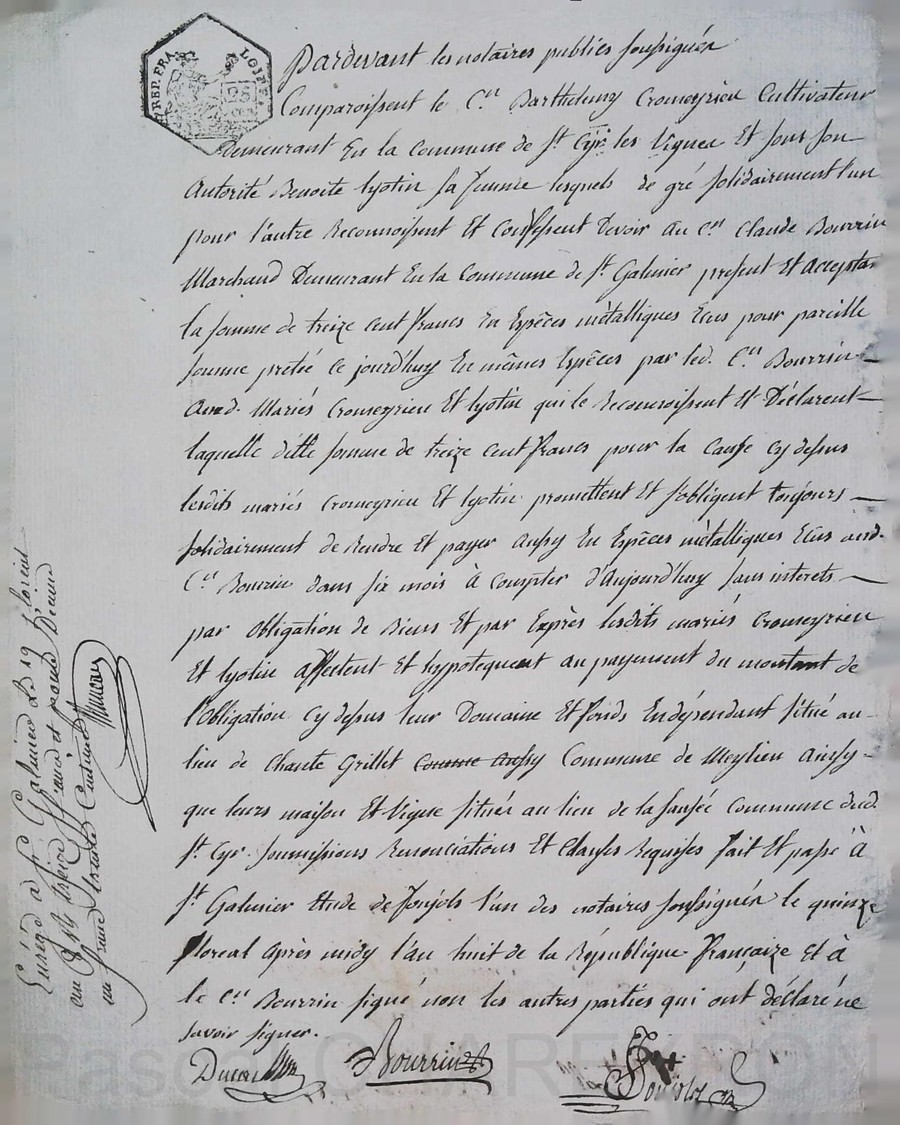 REP. FRA
Pardevant les notaires publics soussignés
Comparoissent le C.en Barthelemy Cromeyrieu Cultivateur
Demeurant En la Commune de St. Cyr les Vignes Et sous son
Autorité Benoite lyotin sa femme lesquels de gré solidairement l'un
pour l'autre Reconnoissent Et Confessent Devoir au C.en Claude Bourrin
Marchand Demeurant En la Commune de St. Galmier present Et Acceptan
la somme de treize cent francs En Espêces mètalliques Ecus pour pareille
somme pretée Ce jourd'huy En mêmes Espêces par led. C.en Bourrin
Auxd. Mariés Cromeyrieu Et lyotin qui le Reconnoissent Et Déclarent
laquelle ditte somme de treize cent francs pour la Cause Cy dessus
lesdits mariés Cromeyrieu Et lyotin promettent Et s'obligent toujours
solidairement de Rendre Et payer Aussy En Espêces mètalliques Ecus aud.
C.en Bourrin dans six mois à Compter d'Aujourd'huy sans interets
par Obligation de Biens Et par Exprès lesdits mariés Cromeyrieu
Et lyotin Affectent Et hypotequent au payement du montant de
l'Obligation Cy dessus leur Domaine Et fonds En dépendant situé au
lieu de Chante Grillet Comme Aussy Commune de Meylieu Aussy
que leurs maison Et Vigne situés au lieu de la Commune dud.
St. Cyr. Soumissions Renonciations Et Clauses Requises fait Et passé à
St. Galmier Etude de Ponjols l'un des notaires soussignés le quinze
floreal Après midy l'an huit de la République françaize et à
le C.en Bourrin signé non les autres parties qui ont déclaré ne
savoir signer.
Bourrin
Enrégé à St. Galmier le 19 floreal
an 8
Pascal CHAREYRON